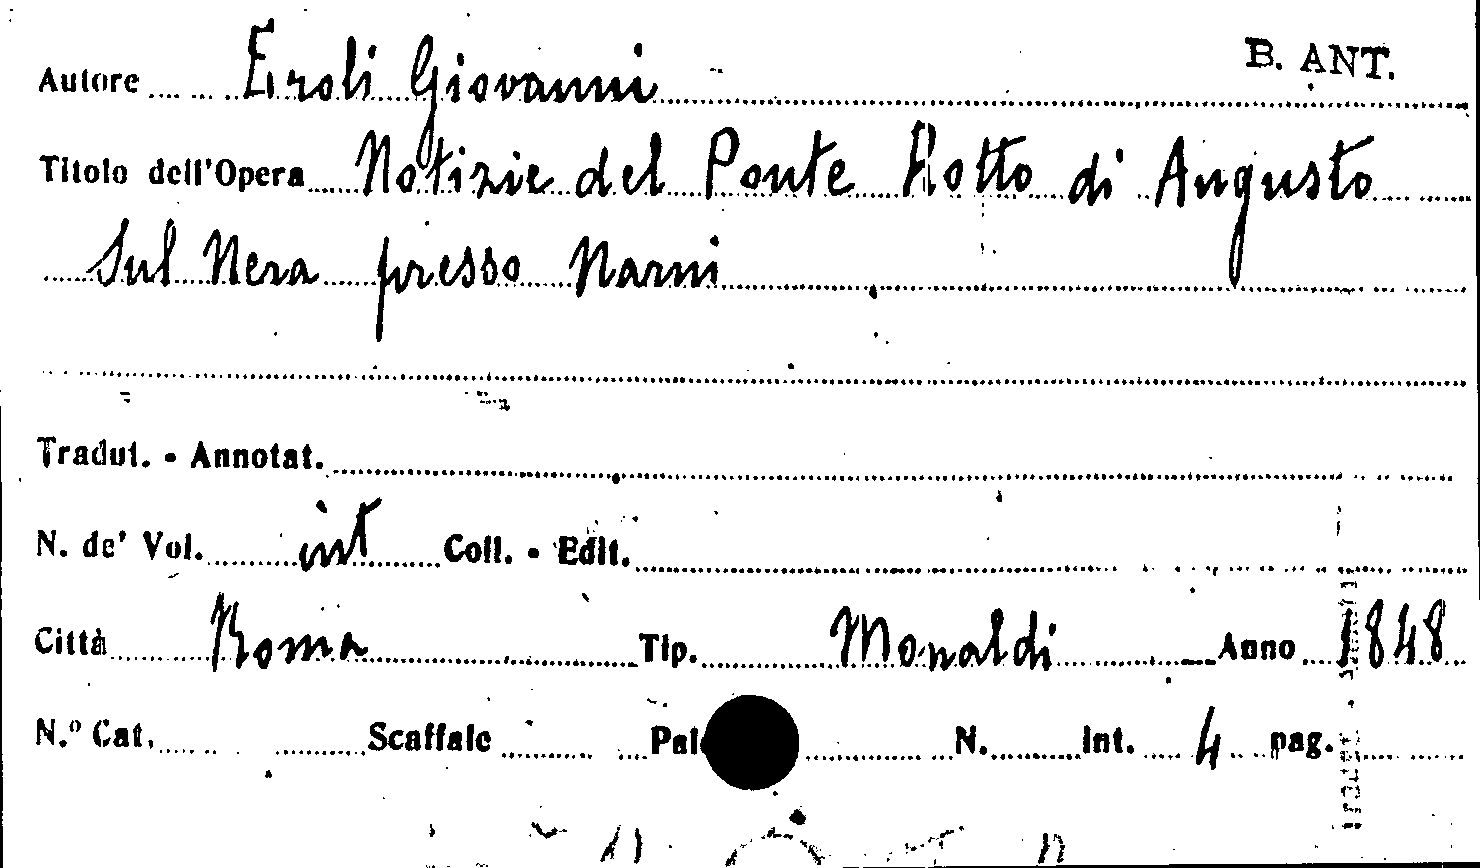 B. ANT.
Autore Eroli Giovanni
Titolo dell'Opera Notizie del Ponte Rotto di Augusto
Sul Nera presso Narni
Tradut. - Annotat.
N. de' Vol. int Coll. - Edit.
Città Roma Tip. Monaldi Anno 1848
N.º Cat. Scaffale Pal N. Int. 4 pag.